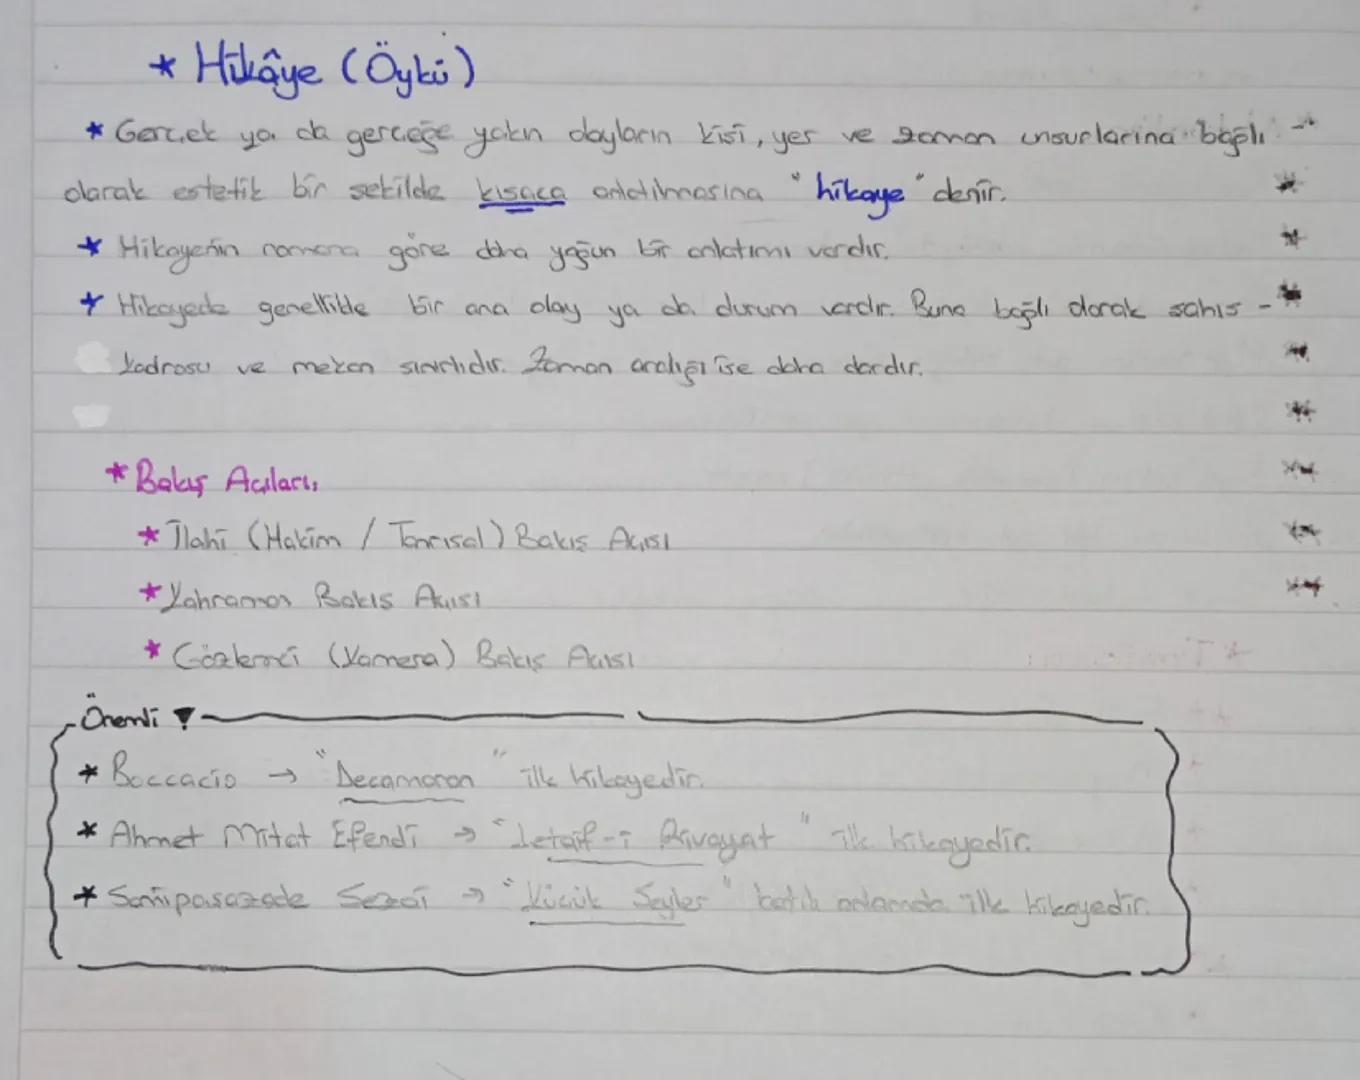 * Hikâye (Öykü)
* Gerçek ya da gerçeğe yakın olayların kişi, yer ve zaman unsurlarına bağlı
olarak estetik bir şekilde kısaca anlatılmasına "hikaye" denir.
* Hikayenin romana göre daha yoğun bir anlatımı vardır.
* Hikayede genellikle bir ana olay ya da durum vardır. Buna bağlı olarak şahıs -
kadrosu ve mekan sınırlıdır. Zaman aralığı ise daha dardır.
* Bakış Açıları,
* İlahi (Hakim / Tanrısal) Bakış Açısı
* Kahraman Bakış Açısı
* Gözlemci (Kamera) Bakış Açısı
Önemli !
* Boccacio → "Decamaron" ilk hikayedir.
* Ahmet Mitat Efendi → "Letaif-i Rivayat" ilk hikayedir.
* Samipaşazade Sezai → "Küçük Şeyler" batılı anlamda ilk hikayedir.